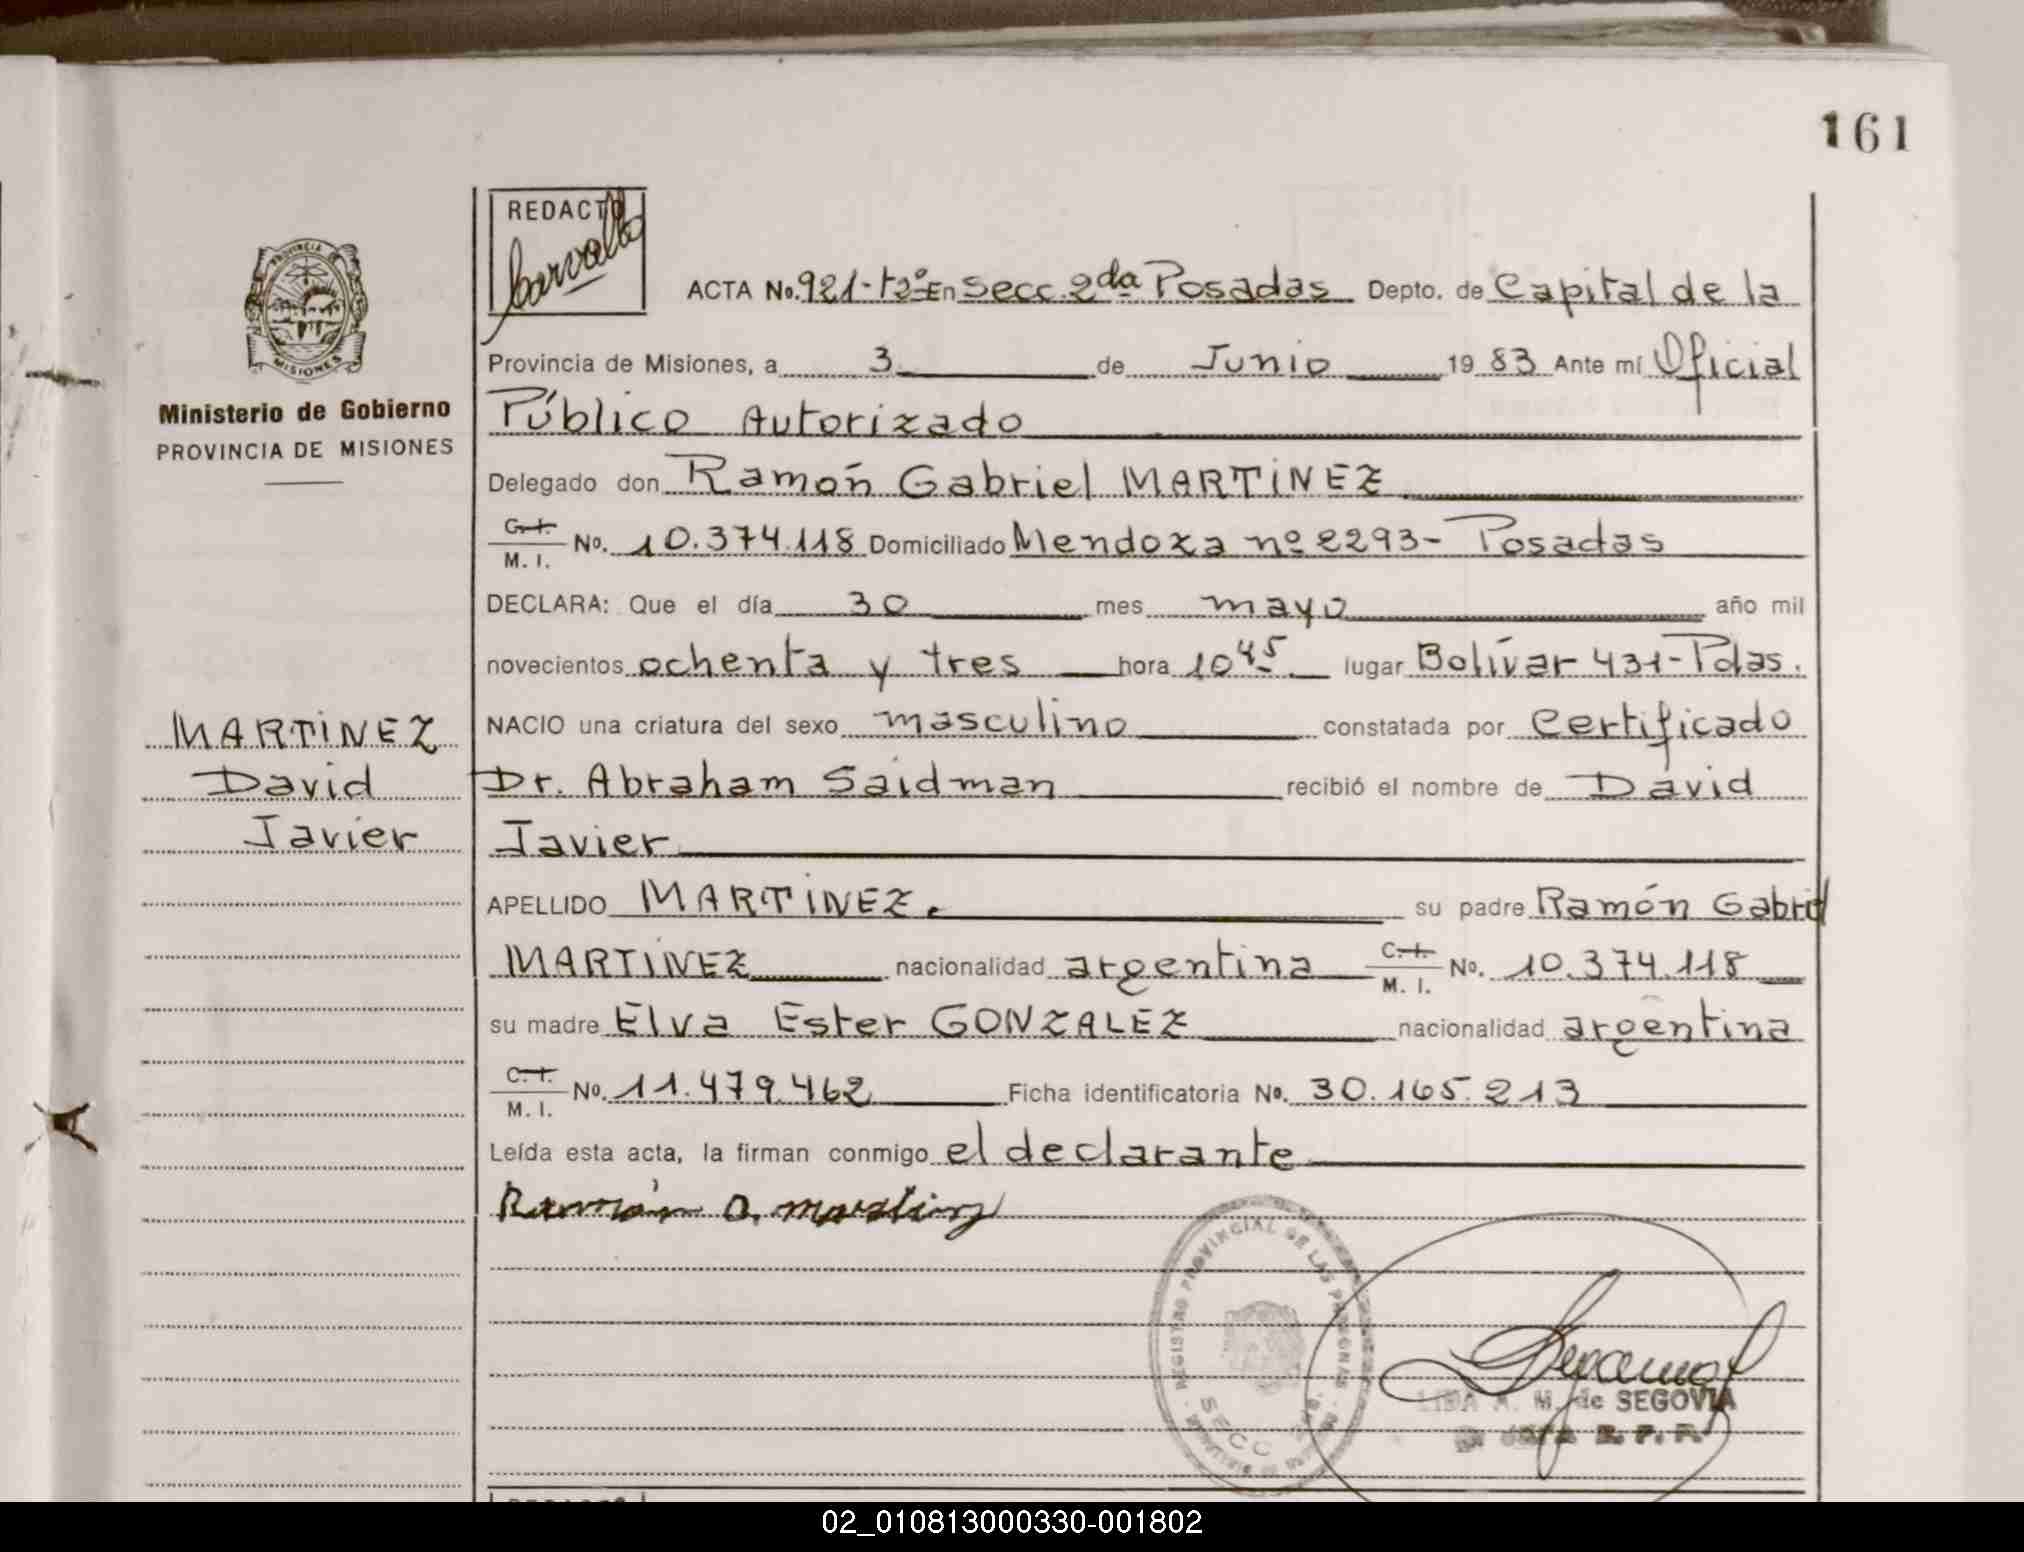 161
PROVINCIA DE
MISIONES
Ministerio de Gobierno
PROVINCIA DE MISIONES
MARTINEZ
David
Javier
REDACTO
ACTA No. 921-t2º En Secc. 2da Posadas Depto. de Capital de la
Provincia de Misiones, a 3 de Junio 19 83 Ante mí Oficial
Público Autorizado
Delegado don Ramón Gabriel MARTINEZ
C. I. / M. I. No. 10.374.118 Domiciliado Mendoza nº 2293- Posadas
DECLARA: Que el día 30 mes mayo año mil
novecientos ochenta y tres hora 10 45 lugar Bolívar 431-Pdas.
NACIO una criatura del sexo masculino constatada por Certificado
Dr. Abraham Saidman recibió el nombre de David
Javier
APELLIDO MARTINEZ. su padre Ramón Gabriel
MARTINEZ nacionalidad argentina C. I. / M. I. No. 10.374.118
su madre Elva Ester GONZALEZ nacionalidad argentina
C. I. / M. I. No. 11.479.462 Ficha identificatoria No. 30.165.213
Leída esta acta, la firman conmigo el declarante
Ramón G. Martinez
REGISTRO PROVINCIAL DE LAS PERSONAS
SECC
LIDA A. M. de SEGOVIA
JEFA R. P. P.
02_010813000330-001802